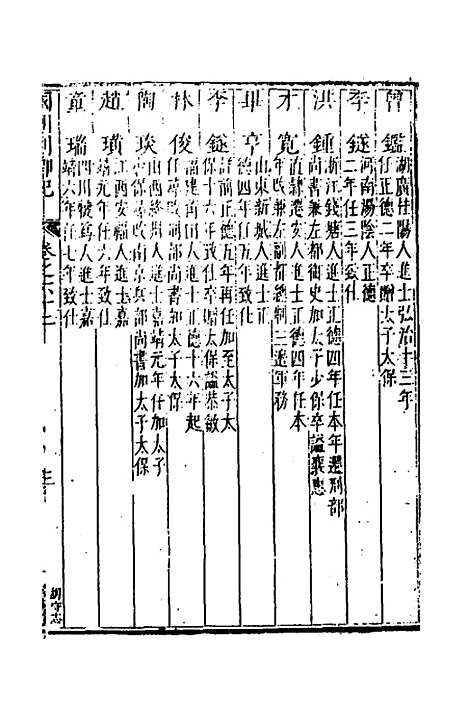 曾鑑 湖廣桂陽人進士弘治十三年
任正德二年卒贈太子太保
李鐩 河南湯陰人正德
二年任三年致仕
洪鍾 浙江錢塘人進士正德四年任本年遷刑部
尚書兼左都御史加太子少保卒謚襄惠
才寬 直隸遷安人進士正德四年任本
年改兼左副都總制三邊軍務
畢亨 山東新城人進士正
德四年任五年致仕
李鐩 詳前正德五年再任加至太子太
保十六年致仕卒贈太保謚恭敏
林俊 福建莆田人進士正德十六年起
任尋改刑部尚書加太子太保
陶琰 山西絳州人進士嘉靖元年任加太子
太保尋改南京兵部尚書加太子太保
趙璜 江西安福人進士嘉
靖元年任六年致仕
童瑞 四川犍爲人進士嘉
靖六年任七年致仕
國朝列卿紀 卷之六十二